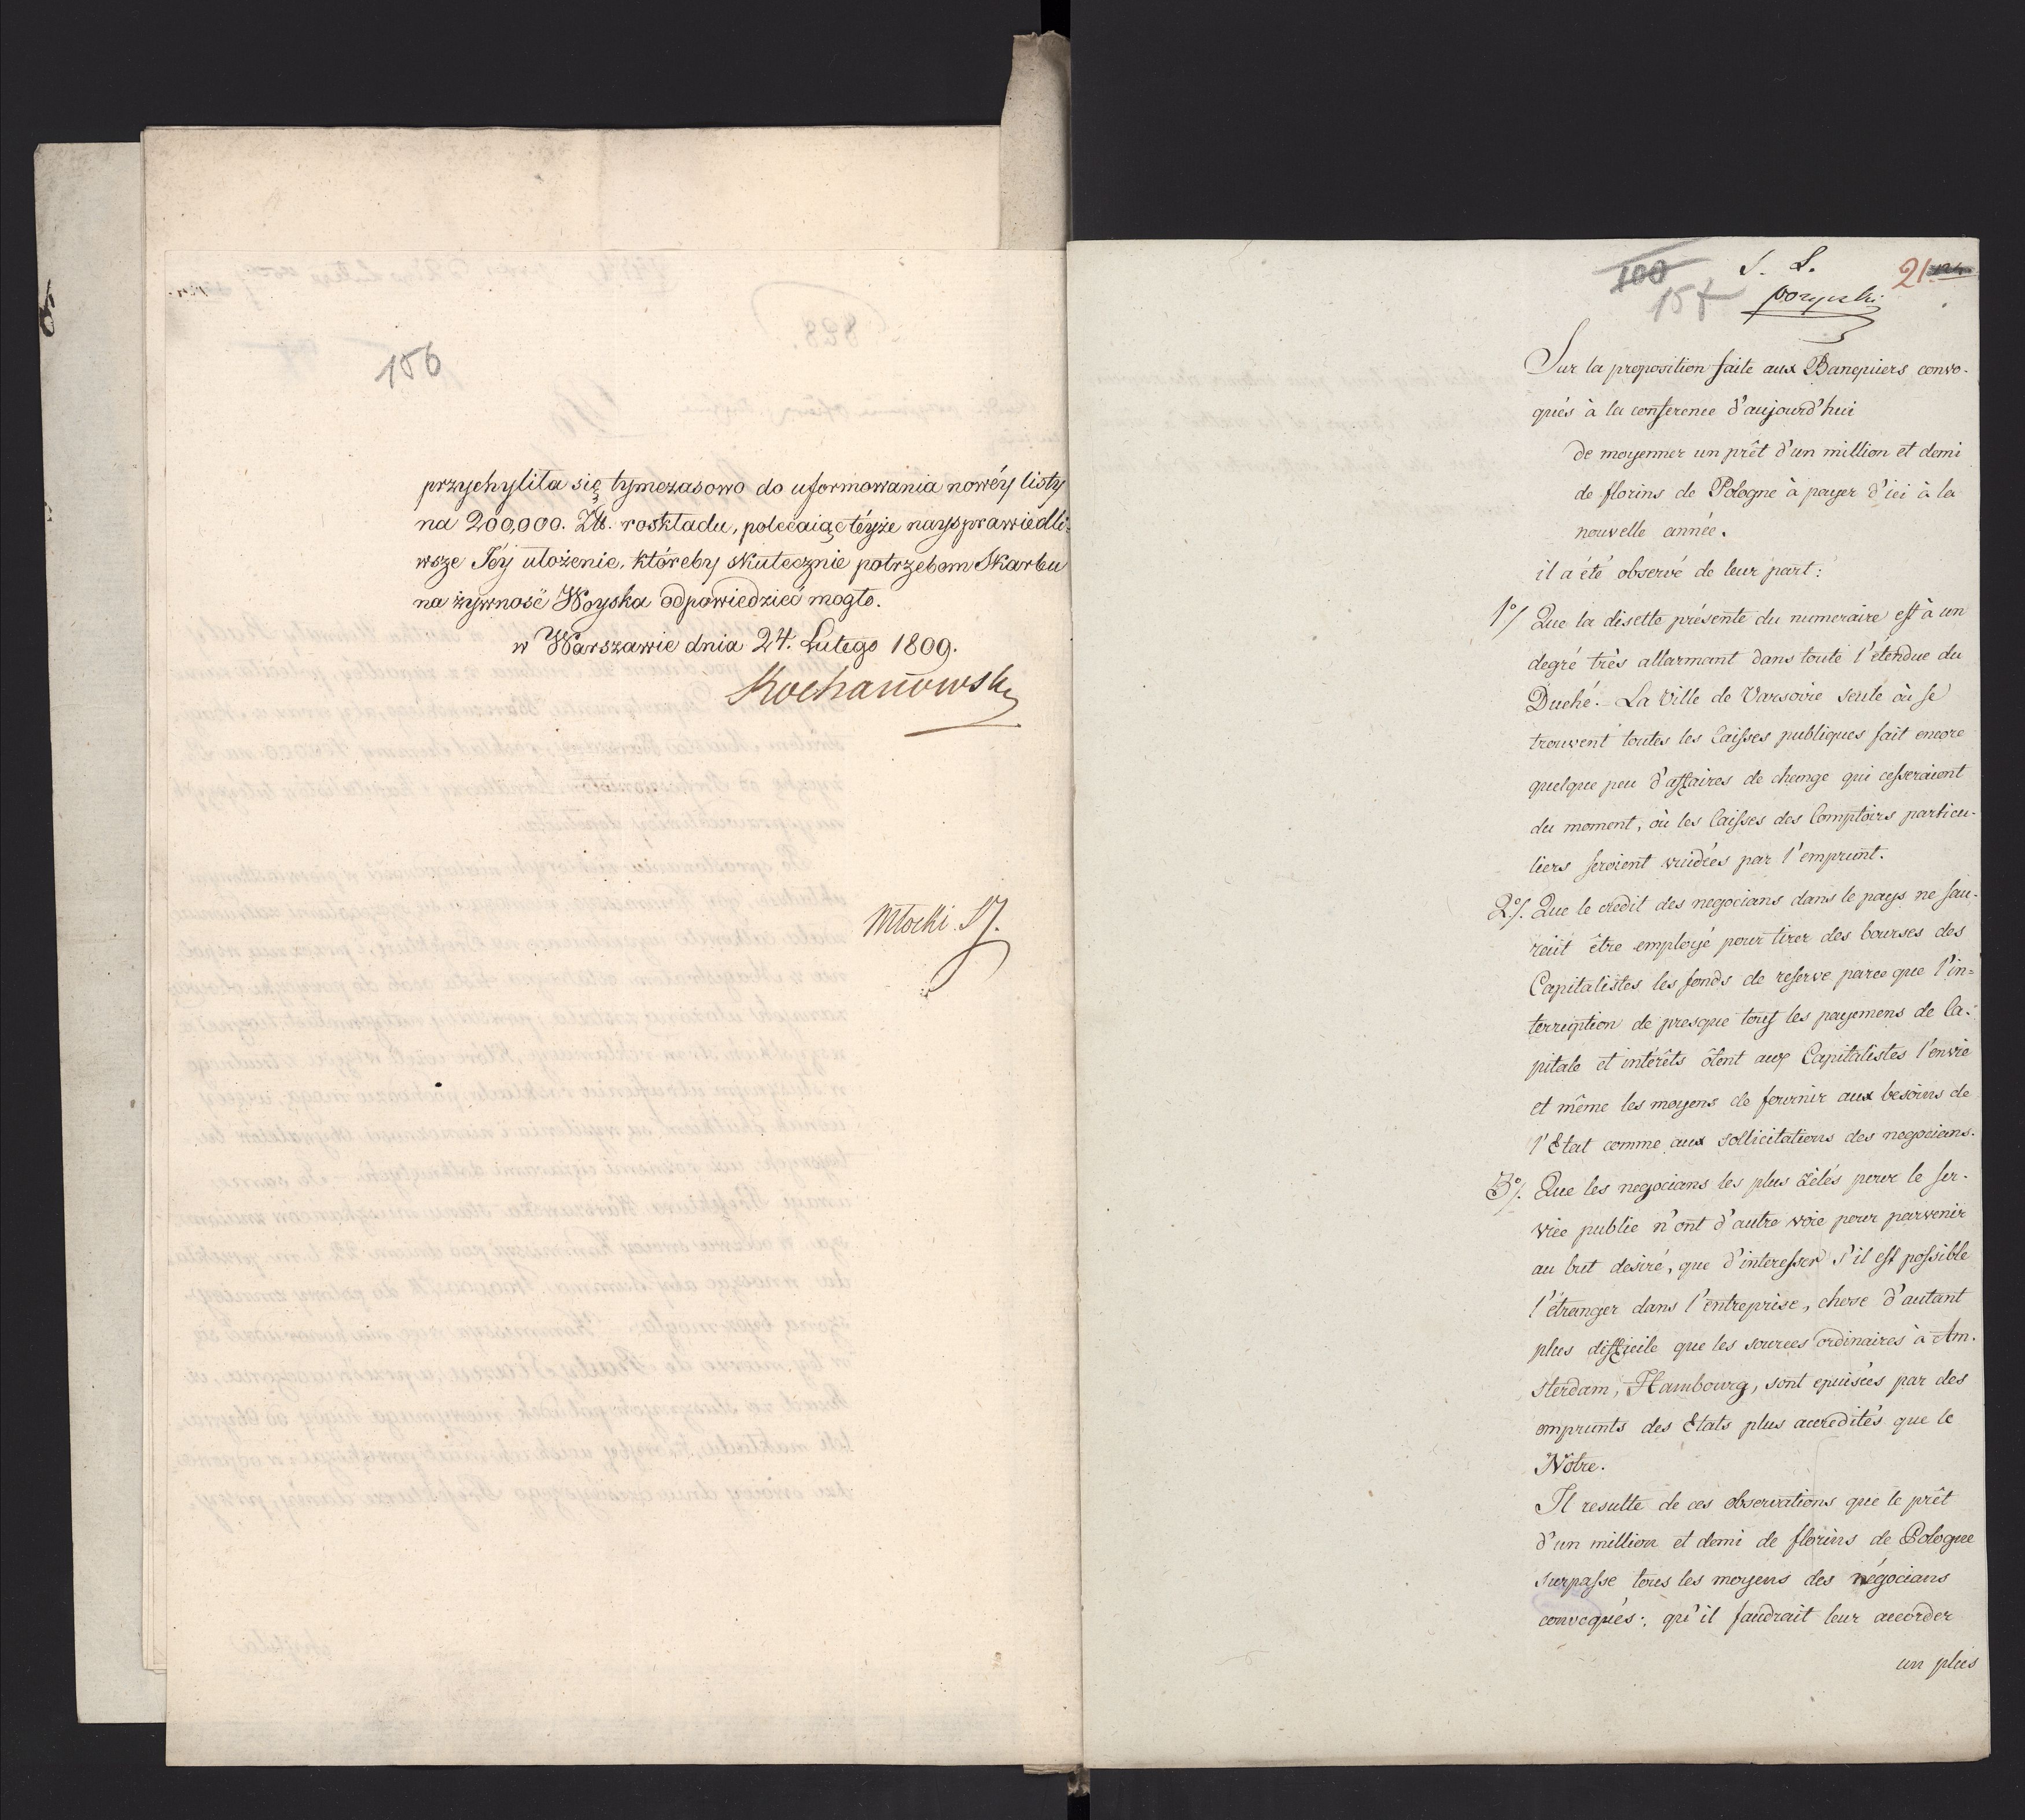 156
przychyliła się tymczasowo do uformowania nowéy listy
na 200,000. Zł. roskładu, polecaiąc téyże naysprawiedli-
wsze Jéy ułożenie, któreby skutecznie potrzebom Skarbu
na żywność Woyska odpowiedzieć mogło.
w Warszawie dnia 24. Lutego 1809.
Kochanowski
Młocki SJ.
100
157
S. L.
pozyczki
21
Sur la proposition faite aux Banquiers convo-
qués à la conference d'aujourd'hui
de moyenner un prêt d'un million et demi
de florins de Pologne à payer d'ici à la
nouvelle année.
il a été observé de leur part:
1º/ Que la disette présente du numeraire est à un
degré très allarmant dans toute l'étendue du
Duché. La Ville de Varsovie seule où se
trouvent toutes les Caisses publiques fait encore
quelque peu d'affaires de change qui cesseraient
du moment, où les Caisses des Comptoirs particu-
liers seroient vuidées par l'emprunt.
2º/. Que le credit des negocians dans le pays ne sau-
rait être employé pour tirer des bourses des
Capitalistes les fonds de reserve parce que l'in-
terruption de presque tous les payemens de Ca-
pitale et intérêts ôtent aux Capitalistes l'envie
et même les moyens de fournir aux besoins de
l'Etat comme aux sollicitations des negocians.
3º/. Que les negocians les plus zèlés pour le ser-
vice public n'ont d'autre voie pour parvenir
au but desiré, que d'interesser s'il est possible
l'étranger dans l'entreprise, chose d'autant
plus difficile que les sources ordinaires à Am-
sterdam, Hambourg, sont epuisées par des
emprunts des Etats plus accredités que le
Nôtre.
Il resulte de ces observations que le prêt
d'un million et demi de florins de Pologne
surpasse tous les moyens des négocians
convoqués; qu'il faudrait leur accorder
un plus